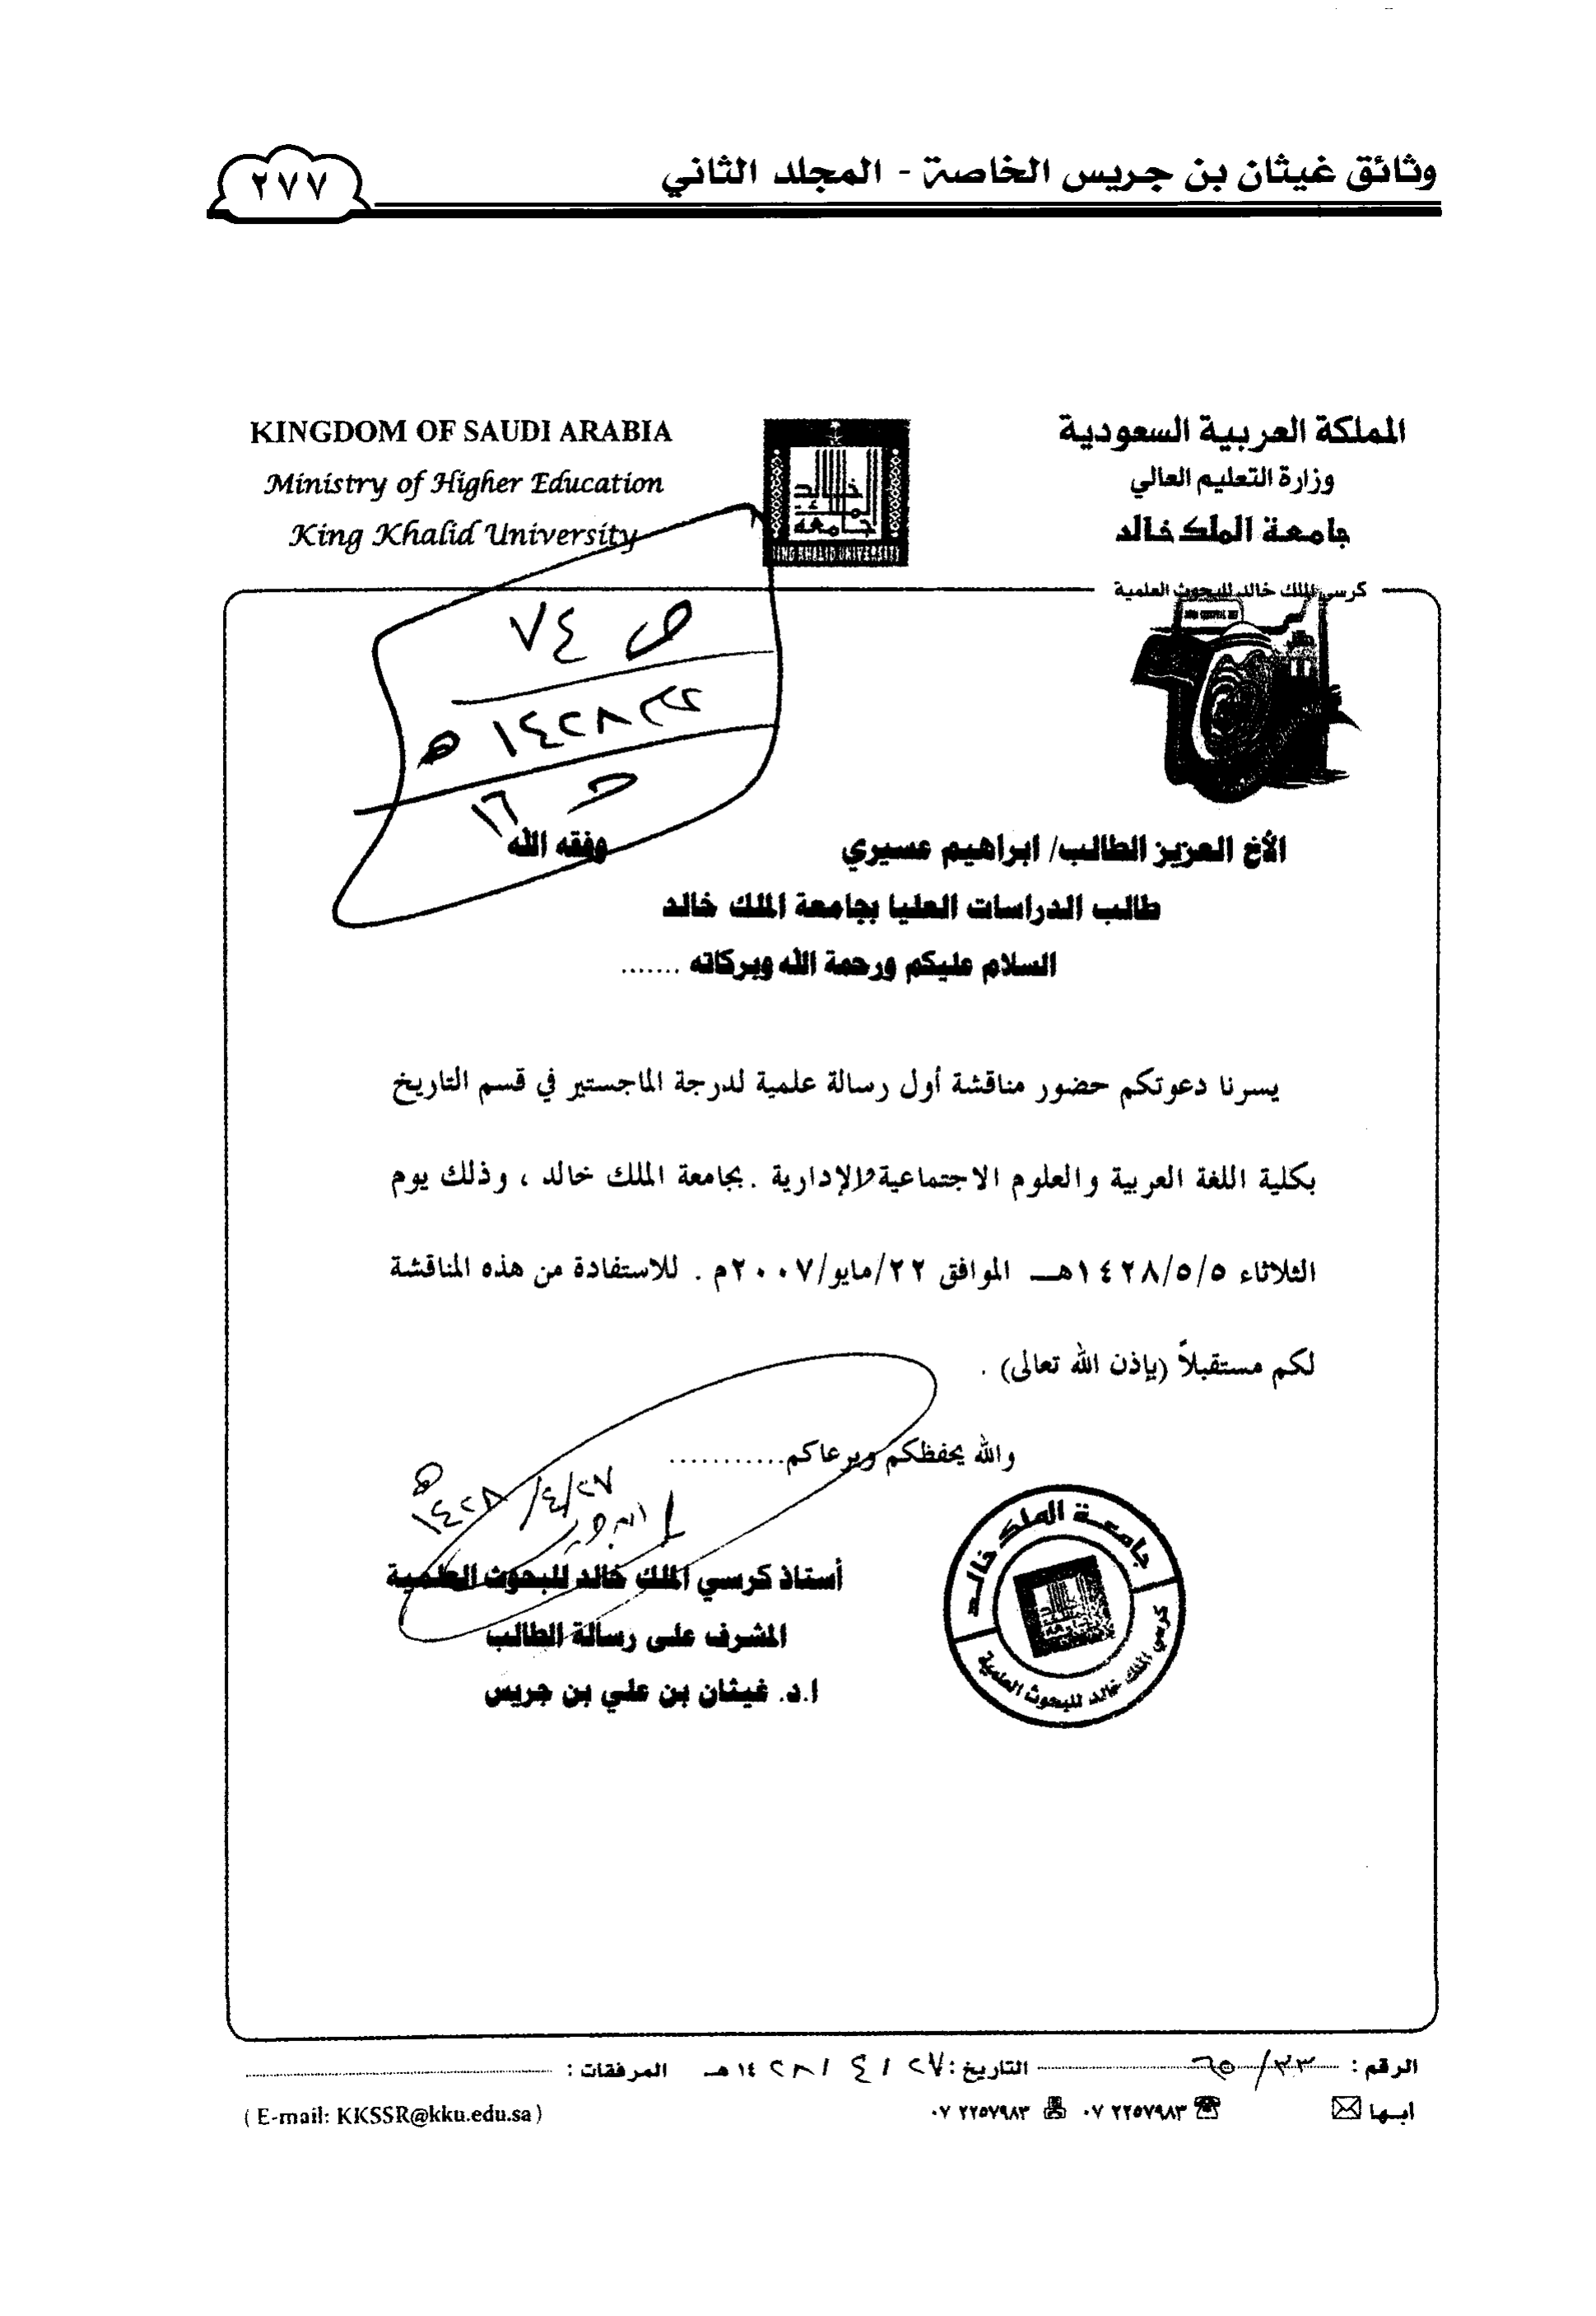 وثائق غيثان بن جريس الخاصة - المجلد الثاني
٢٧٧
المملكة العربية السعودية
وزارة التعليم العالي
جامعة الملك خالد
KINGDOM OF SAUDI ARABIA
Ministry of Higher Education
King Khalid University
KING KHALID UNIVERSITY
كرسي الملك خالد للبحوث العلمية
ص ٧٤
١٤٢٨ هـ
١٦
الأخ العزيز الطالب/ ابراهيم عسيري وفقه الله
طالب الدراسات العليا بجامعة الملك خالد
السلام عليكم ورحمة الله وبركاته .......
يسرنا دعوتكم حضور مناقشة أول رسالة علمية لدرجة الماجستير في قسم التاريخ
بكلية اللغة العربية والعلوم الاجتماعية والإدارية . بجامعة الملك خالد ، وذلك يوم
الثلاثاء ١٤٢٨/٥/٥هـ الموافق ٢٢/مايو/٢٠٠٧م . للاستفادة من هذه المناقشة
لكم مستقبلاً (بإذن الله تعالى) .
والله يحفظكم ويرعاكم...........
٢٧/٤/١٤٢٨ هـ
أستاذ كرسي الملك خالد للبحوث العلمية
المشرف على رسالة الطالب
ا.د. غيثان بن علي بن جريس
جامعة الملك خالد
كرسي الملك خالد للبحوث العلمية
الرقم : ٦٥/٣٣ التاريخ : ٢٧ / ٤ / ١٤٢٨ هـ المرفقات :
ابها ٠٧ ٢٢٥٧٩٨٣ ٠٧ ٢٢٥٧٩٨٣ ( E-mail: KKSSR@kku.edu.sa )